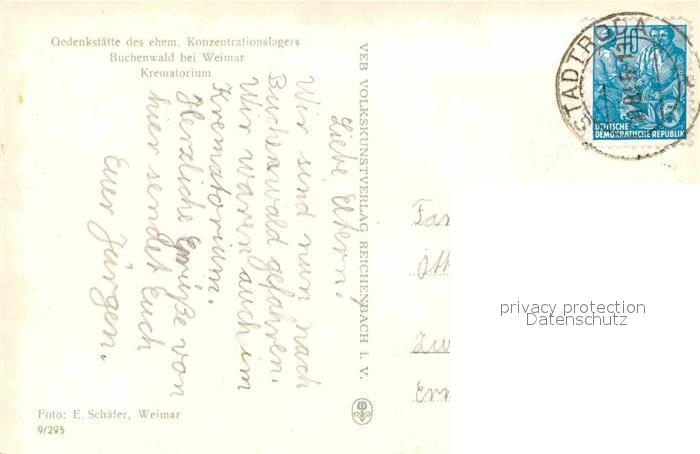 Gedenkstätte des ehem. Konzentrationslagers
Buchenwald bei Weimar
Krematorium
Liebe Eltern!
Wir sind nun nach
Buchenwald gefahren.
Wir waren auch im
Krematorium.
Herzliche Grüße von
hier sendet Euch
Euer Jürgen.
Foto: E. Schäfer, Weimar
9/295
VEB VOLKSKUNSTVERLAG REICHENBACH I. V.
STADTRODA
10
DEUTSCHE
DEMOKRATISCHE REPUBLIK
Fam
Ott
Zw
Ern
privacy protection
Datenschutz